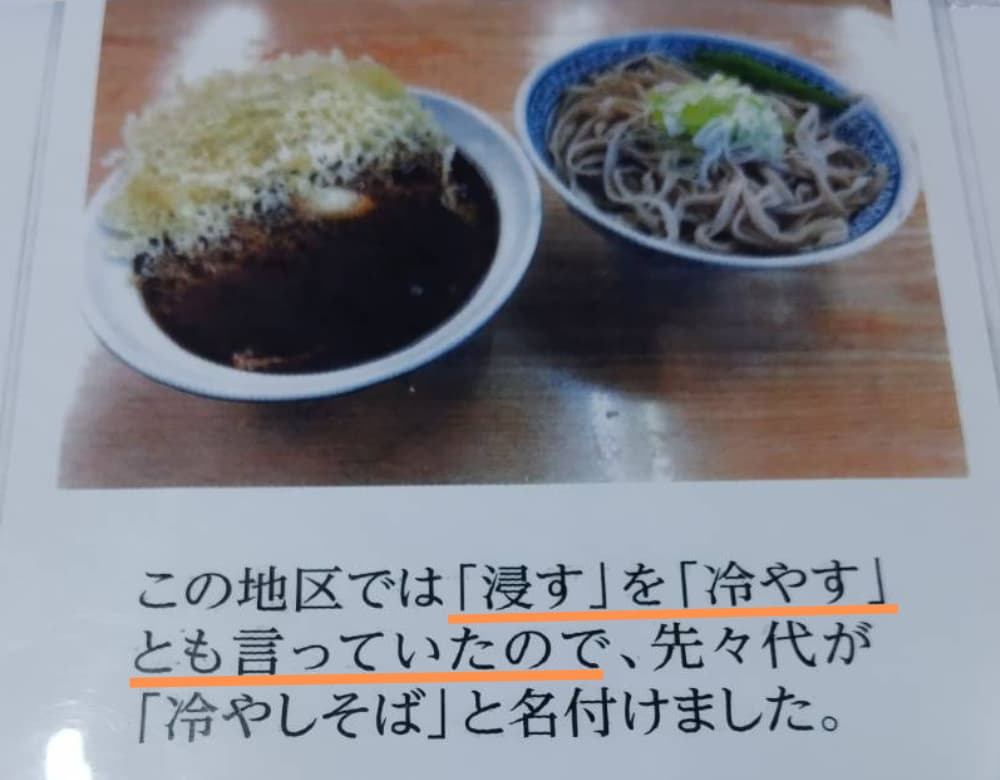 この地区では「浸す」を「冷やす」
とも言っていたので、先々代が
「冷やしそば」と名付けました。